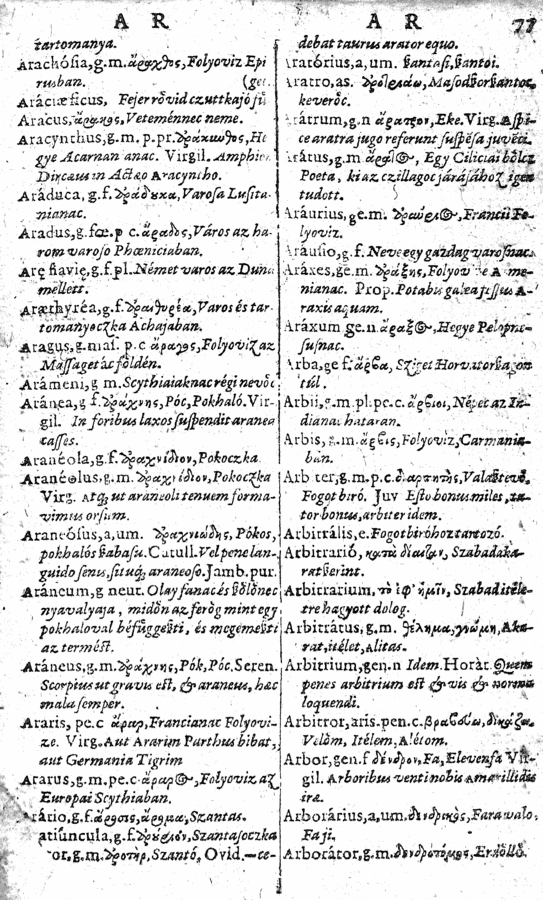 A R
tartomanya.
Arachósia, g.m. ἄραχθος, Folyoviz Epi
rusban. (get.
Aráciæficus, Fejer rövid czuttkajó
Aracus, ἄρακος, Veteménnec neme.
Aracynthus, g.m. p. pr. ἀράκυνθος,
gye Acarnan anac. Virgil. Amphion
Dircæus in Actæo Aracyntho.
Aráduca, g.f. ἀράδυκα, Varosa Lusita-
nianac.
Aradus, g. fœ. p c. ἄραδος, Város az ha-
rom varoso Phœniciaban.
Aræ flaviæ, g.f.pl. Német varos az Duna
mellett.
Aræthyréa, g.f. ἀραιθυρέα, Varos és tar-
tomanyoczka Achajaban.
Aragus, g.mas. p. c ἄραγος, Folyoviz az
Massagetác földén.
Arámeni, g m. Scythiaiaknac régi nevöc
Aránea, g f. ἀράχνης, Póc, Pokhaló. Vir-
gil. In foribus laxos suspendit aranea
casses.
Araneola, g.f. ἀραχνίδιον, Pokoczka.
Aranéolus, g.m. ἀραχνίδιον, Pokoczka
Virg. Atq; ut araneoli tenuem forma-
vimus orsum.
Araneósus, a, um. ἀραχνιώδης, Pókos,
pokhalós ßabasu. Catull. Vel pene lan-
guido senis, situq; araneoso. Jamb. pur.
Aráneum, g neut. Olay fanac és ßőlőnec
nyavalyaja, midőn az ferög mint egy
pokhaloval béfüggeßti, és megemeßti
az termést.
Aráneus, g.m. ἀράχνης, Pók, Póc. Seren.
Scorpius ut gravis est, & araneus, hæc
mala semper.
Araris, pe. c ἄραρ, Francianac Folyovi-
ze. Virg. Aut Ararim Parthus bibat,
aut Germania Tigrim
Ararus, g.m. pe. c. ἄραρος, Folyoviz az
Europai Scythiaban.
Arátio, g.f. ἄροσις, ἄρομα, Szantas.
atiúncula, g.f. Szantasoczka
or, g.m. ἀροτὴρ, Szantó, Ovid. —ce-
A R 77
debat taurus arator equo.
Aratórius, a, um. ßantasi, ßantoi.
Aratro, as. Masodßor ßantoc,
keveröc.
Arátrum, g.n ἄροτρον, Eke. Virg. Aspi-
ce aratra jugo referunt suspēsa juvēci.
Arátus, g.m ἄρατος, Egy Ciliciai bölcz
Poeta, ki az czillagoc járájához igen
tudott.
Aráurius, ge. m. Francii Fo-
lyoviz.
Aráusio, g.f. Neve egy gazdag varosnac.
Aráxes, ge. m. ἀράξης, Folyov ze Arme-
nianac. Prop. Potabis galea fessus A-
raxis aquam.
Aráxum ge. n ἄραξος, Hegye Pelopne-
susnac.
Arba, ge f. ἄρβα, Sziget Horvatorßagon
túl.
Arbii, g.m. pl. pe. c. ἄρβιοι, Népec az In-
dianac hataran.
Arbis, g.m. ἄρβις, Folyoviz, Carmania-
ban.
Arb ter, g.m. p.c. διαιτητὴς, Valaßtevö,
Fogot biró. Juv Esto bonus miles, tu-
tor bonus, arbiter idem.
Arbitrális, e. Fogot biróhoz tartozó.
Arbitrarió, κατὰ δίαιταν, Szabadaka-
rat ßerint.
Arbitrarium, τὸ ἐφ' ἡμῖν, Szabad itéle-
tre hagyott dolog.
Arbitrátus, g.m. θέλημα, γνώμη, Aka-
rat, itélet, Alitas.
Arbitrium, gen. n Idem. Horat. Quem
penes arbitrium est & vis & norma
loquendi.
Arbitror, aris. pen. c. βραβεύω,
Velöm, Itélem, Alétom.
Arbor, gen. f δένδρον, Fa, Elevenfa Vir-
gil. Arboribus venti nobis Amarillidis
iræ.
Arborárius, a, um. δενδρικὸς, Fara valo,
Fa ji.
Arborátor, g.m. δενδροτόμος,